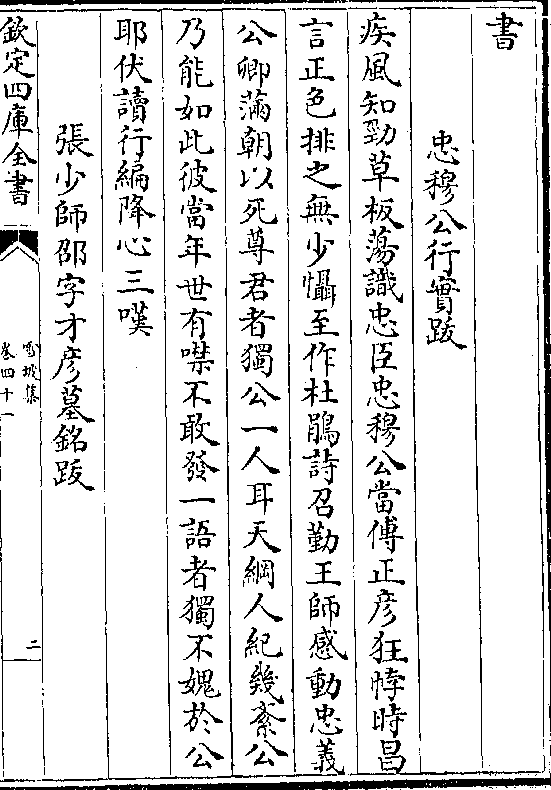 書
忠穆公行實跋
疾風知勁草板蕩識忠臣忠穆公當傅正彦狂悖時昌
言正色排之無少懾至作杜鵑詩召勤王師感動忠義
公卿滿朝以死尊君者獨公一人耳天綱人紀幾紊公
乃能如此彼當年世有噤不敢發一語者獨不媿於公
耶伏讀行編降心三嘆
張少師邵字才彦墓銘跋
欽定四庫全書
卷四十一
二